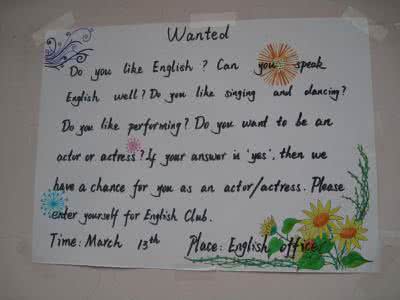 Wanted
Do you like English? Can you speak
English well? Do you like singing and dancing?
Do you like performing? Do you want to be an
actor or actress? If your answer is 'yes', then we
have a chance for you as an actor/actress. Please
enter yourself for English Club.
Time: March 13th Place: English office